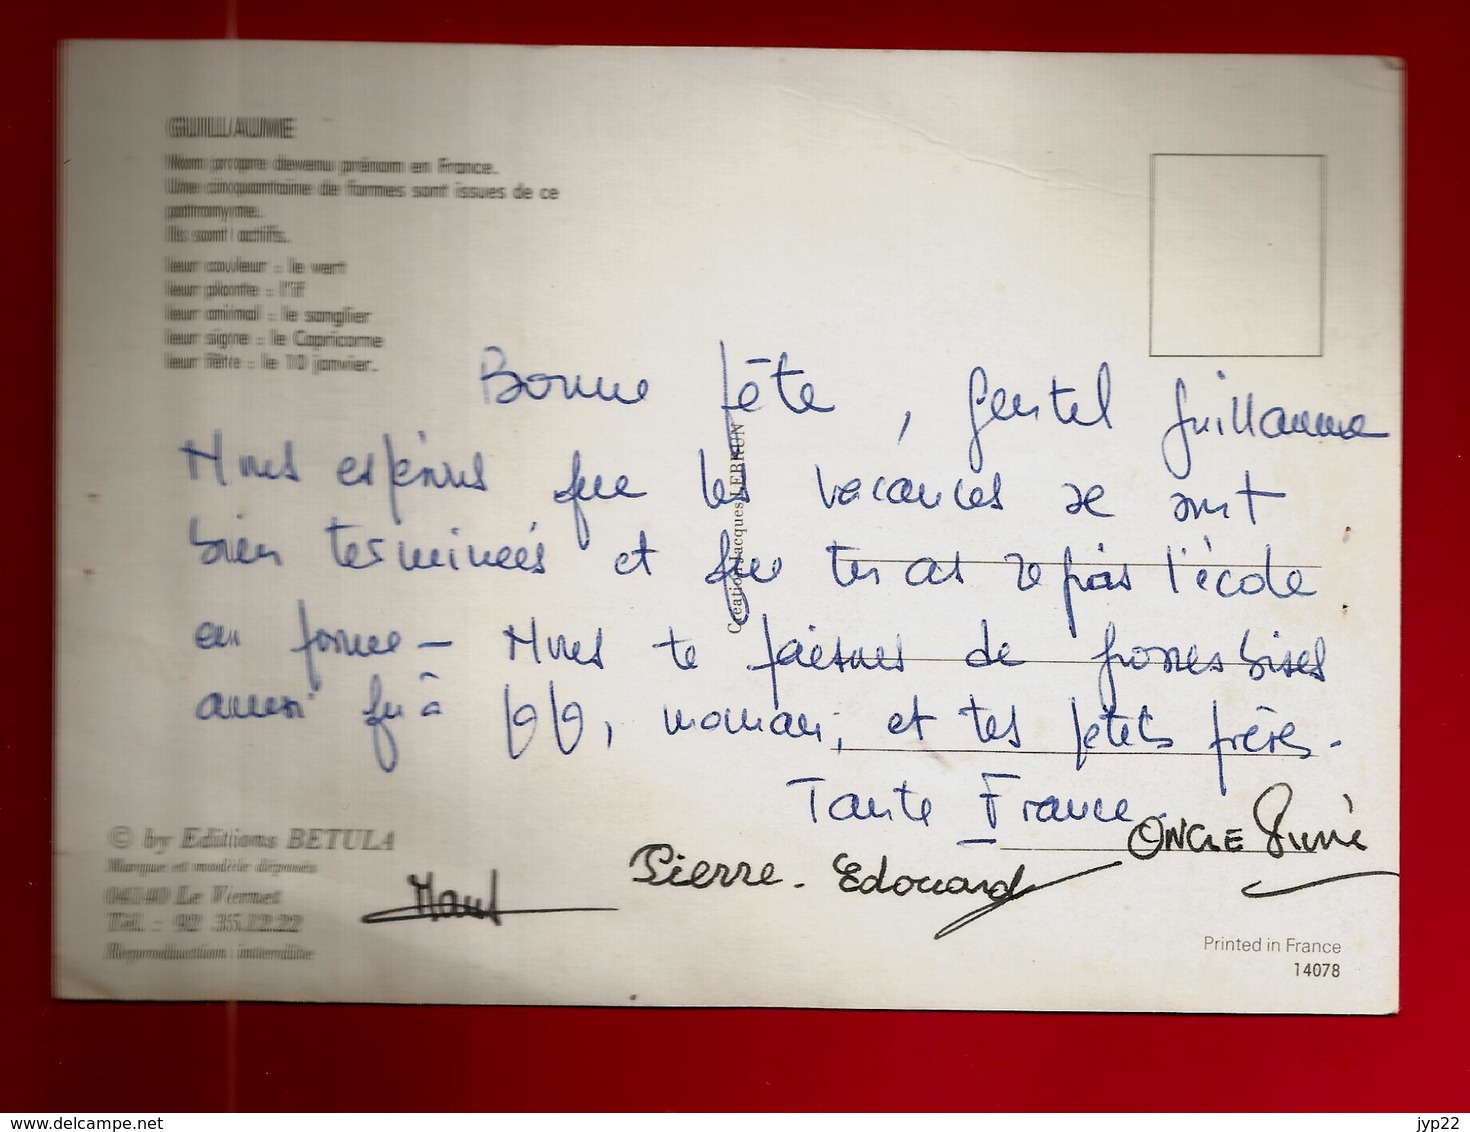 GUILLAUME
Nom propre devenu prénom en France.
Une cinquantaine de formes sont issues de ce
patronyme.
Ils sont actifs.
leur couleur : le vert
leur plante : l'if
leur animal : le sanglier
leur signe : le Capricorne
leur fête : le 10 janvier.
Bonne fête, gentil Guillaume
Nous espérons que les vacances se sont
bien terminées et que tu as repris l'école
en forme - Nous te faisons de grosses bises
ainsi qu'à, maman, et tes petits frères.
Tante France
ONCLE
Pierre-Edouard
Création Jacques LEBRUN
© by Editions BETULA
Marque et modèle déposés
04140 Le Vernet
Tél. : 92 35.12.22
Reproduction interdite
Printed in France
14078
delcampe.net
jyp22